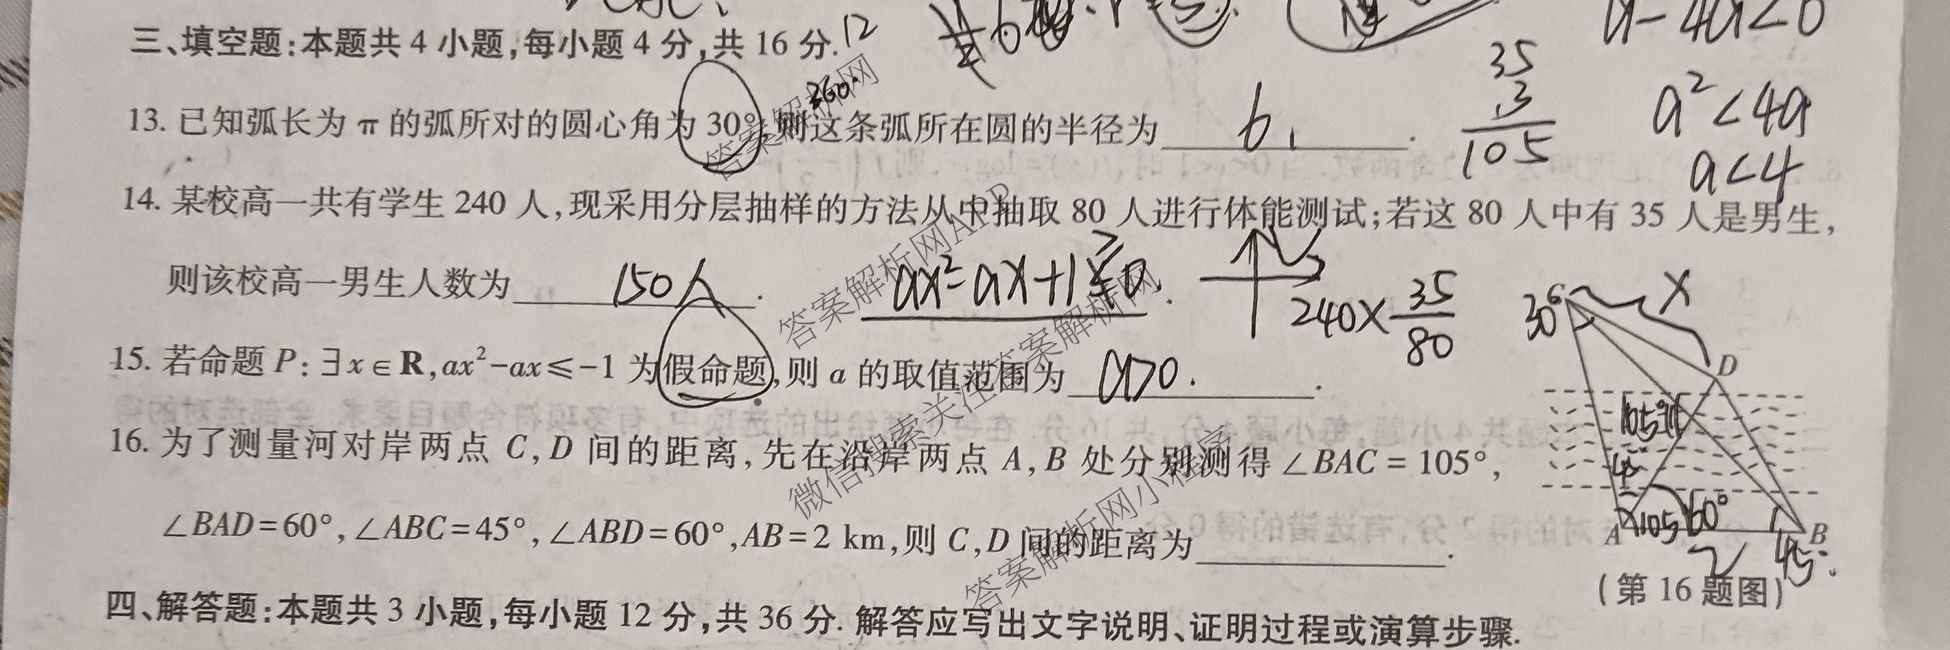 三、填空题:本题共 4 小题,每小题 4 分,共 16 分.
12
a-4a<0
35
3
105
a²<4a
a<4
360°
13. 已知弧长为 π 的弧所对的圆心角为 30°,则这条弧所在圆的半径为 6 .
14. 某校高一共有学生 240 人,现采用分层抽样的方法从中抽取 80 人进行体能测试;若这 80 人中有 35 人是男生,
则该校高一男生人数为 150人 .
240×35/80
15. 若命题 P:∃x∈R,ax²-ax≤-1 为假命题,则 a 的取值范围为 a>0. .
16. 为了测量河对岸两点 C,D 间的距离,先在沿岸两点 A,B 处分别测得∠BAC=105°,
∠BAD=60°,∠ABC=45°,∠ABD=60°,AB=2 km,则 C,D 间的距离为 .
30°
C
x
D
A
105
60°
B
2
45°
(第 16 题图)
四、解答题:本题共 3 小题,每小题 12 分,共 36 分. 解答应写出文字说明、证明过程或演算步骤.
答案解析网
答案解析网APP
微信搜索关注答案解析网
答案解析网小程序